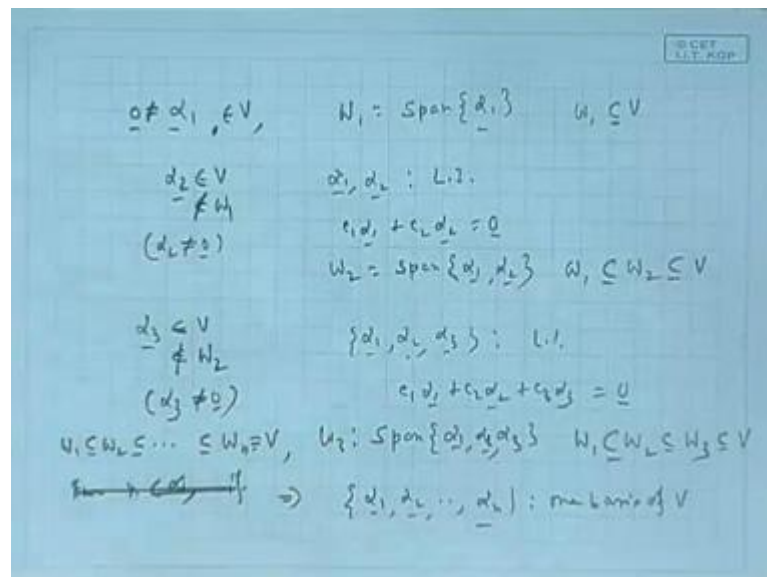 © CET
I.I.T. KGP
0 ≠ α₁ ∈ V, W₁ = Span{α₁} W₁ ⊆ V
α₂ ∈ V α₁, α₂ : L.I.
∉ W₁
(α₂ ≠ 0) c₁α₁ + c₂α₂ = 0
W₂ = Span{α₁, α₂} W₁ ⊆ W₂ ⊆ V
α₃ ∈ V {α₁, α₂, α₃} : L.I.
∉ W₂
(α₃ ≠ 0) c₁α₁ + c₂α₂ + c₃α₃ = 0
W₁ ⊆ W₂ ⊆ ... ⊆ Wₙ = V, W₃ : Span{α₁, α₂, α₃} W₁ ⊆ W₂ ⊆ W₃ ⊆ V
⇒ {α₁, α₂, .., αₙ} : one basis of V